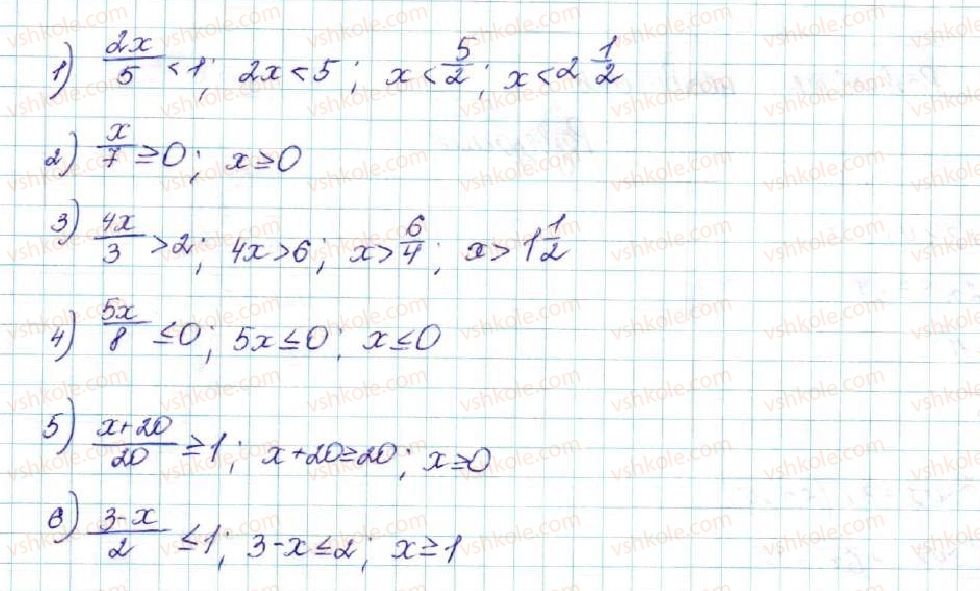 1) 2x/5 < 1; 2x < 5; x < 5/2; x < 2 1/2
2) x/7 ≥ 0; x ≥ 0
3) 4x/3 > 2; 4x > 6; x > 6/4; x > 1 1/2
4) 5x/8 ≤ 0; 5x ≤ 0; x ≤ 0
5) x+20/20 ≥ 1; x+20 ≥ 20; x ≥ 0
6) 3-x/2 ≤ 1; 3-x ≤ 2; x ≥ 1
vshkole.com